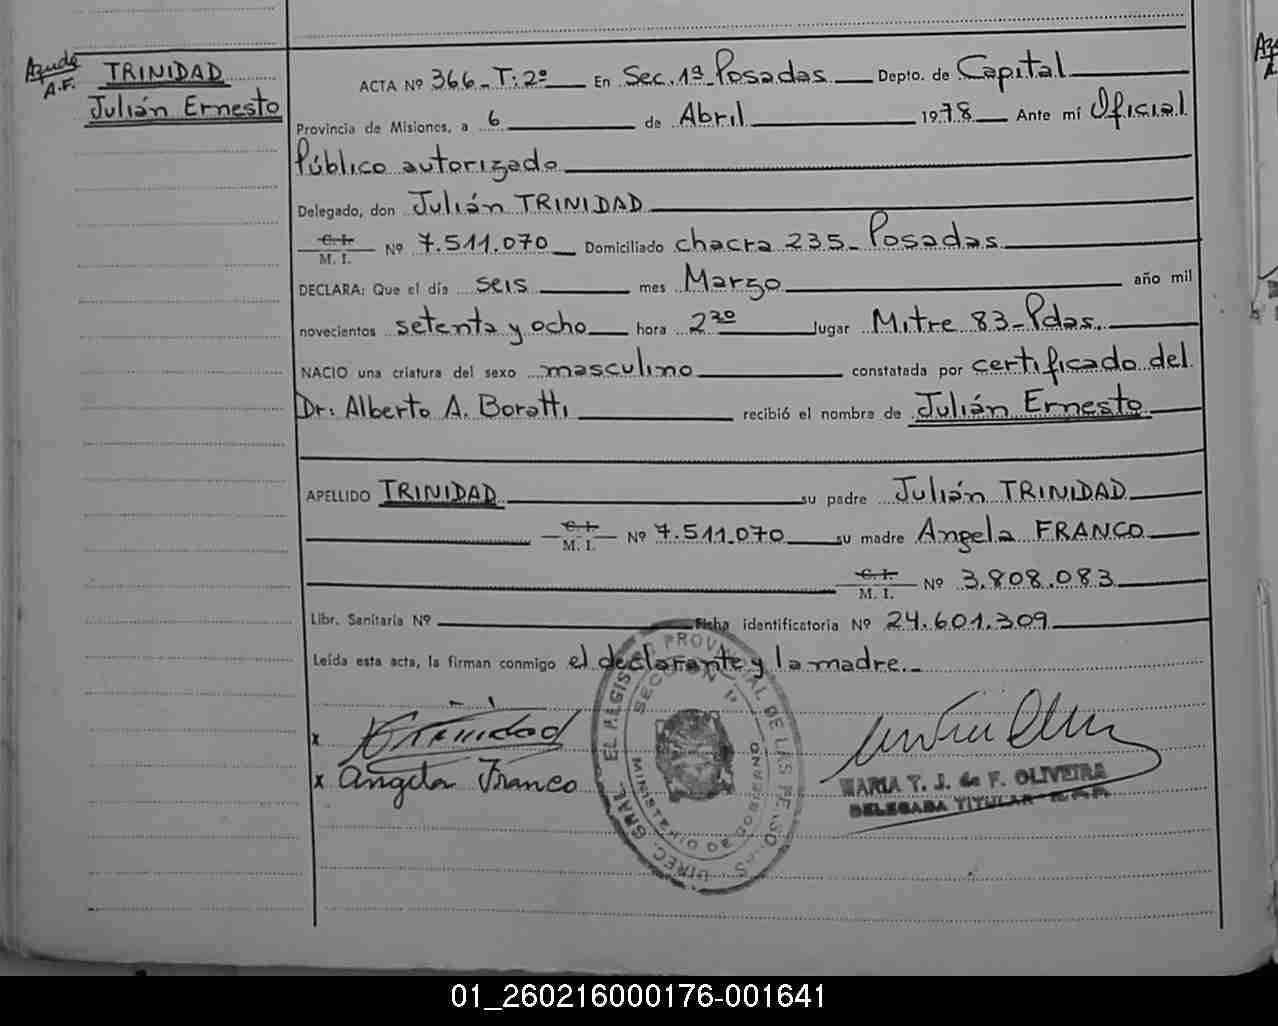 Ayuda A.F.
TRINIDAD
Julián Ernesto
ACTA Nº 366_T:2º En Sec. 1ª Posadas Depto. de Capital
Provincia de Misiones, a 6 de Abril 1978 Ante mí Oficial
Público autorizado
Delegado, don Julián TRINIDAD
C. I. M. I. Nº 7.511.070 Domiciliado chacra 235_ Posadas
DECLARA: Que el día seis mes Marzo año mil
novecientos setenta y ocho hora 2 30 lugar Mitre 83_Pdas.
NACIO una criatura del sexo masculino constatada por certificado del
Dr: Alberto A. Boratti recibió el nombre de Julián Ernesto
APELLIDO TRINIDAD su padre Julián TRINIDAD
C. I. M. I. Nº 7.511.070 su madre Angela FRANCO
C. I. M. I. Nº 3.808.083
Libr. Sanitaria Nº Ficha identificatoria Nº 24.601.309
Leída esta acta, la firman conmigo el declarante y la madre._
x Trinidad
x Angela Franco
DIREC. GRAL. EL REGIST. PROVINCIAL DE LAS PERSONAS
SECCION 1ª
MINISTERIO DE GOBIERNO
MARIA T. J. de F. OLIVEIRA
DELEGADA TITULAR
01_260216000176-001641